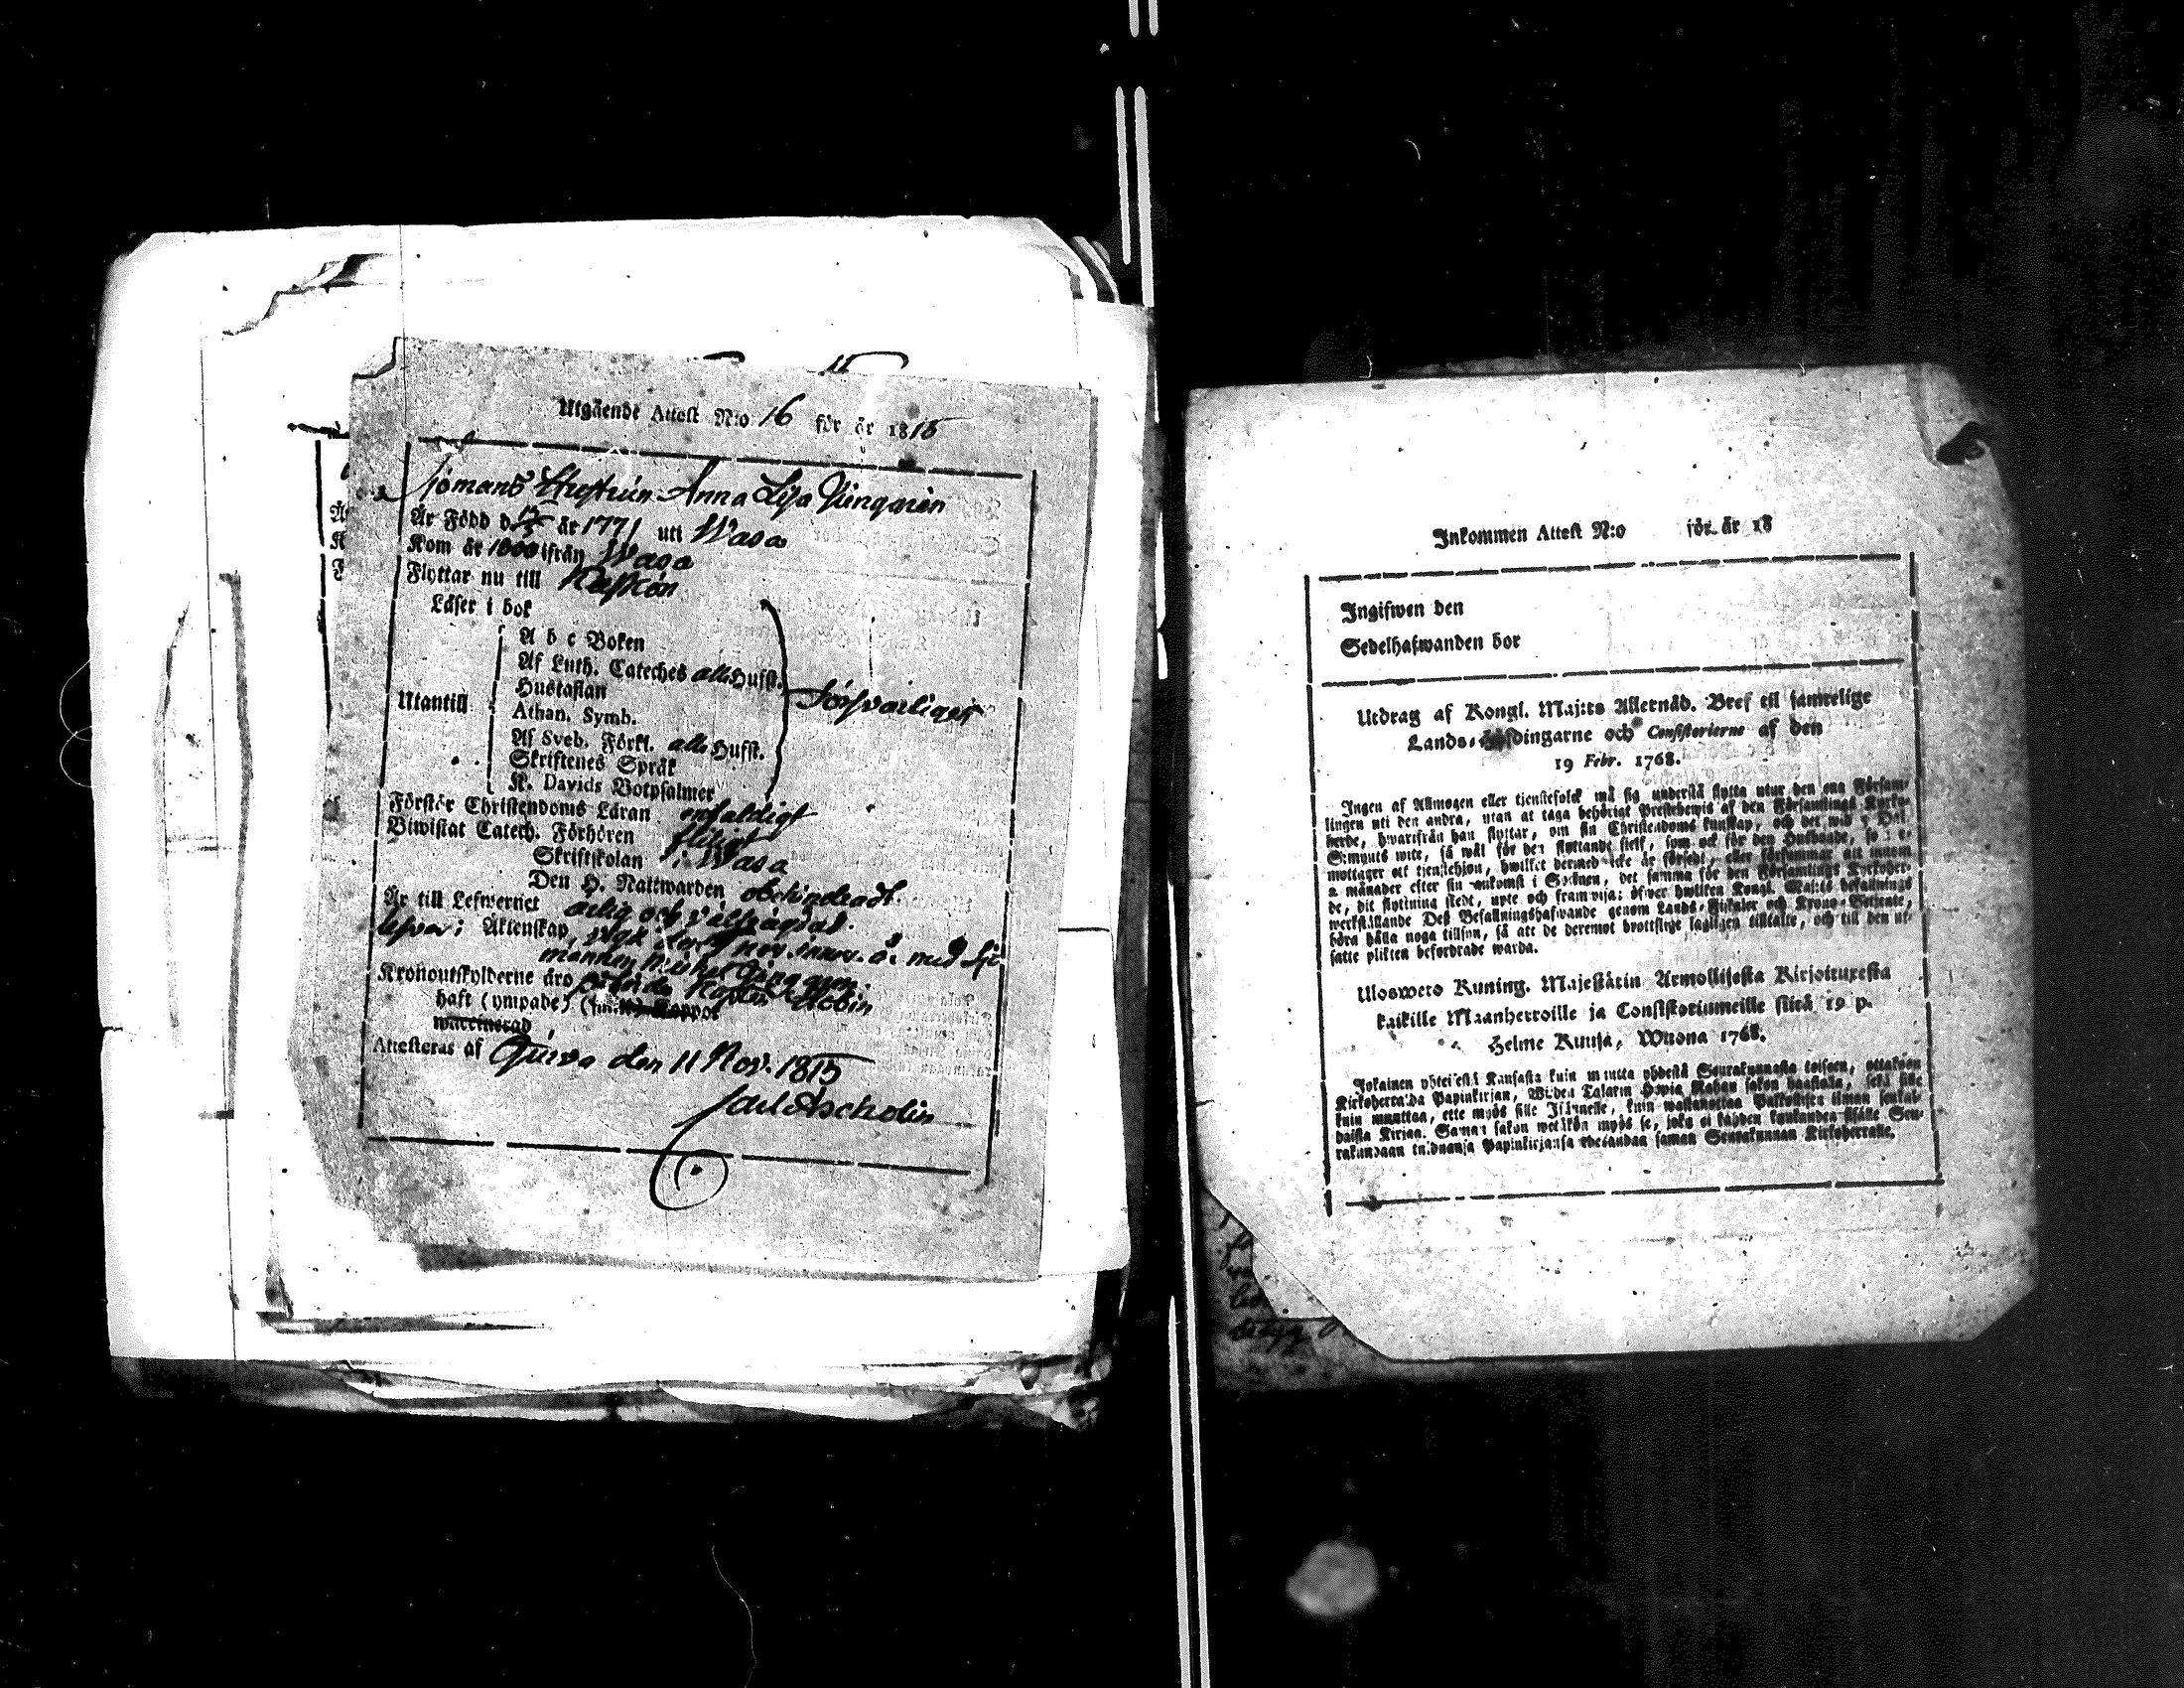 Utgående Attest N:o 16 för år 1815
Sjömans Hustrun Anna Lisa Ljungqvin
Är Född d. år 1771 uti Wasa
Kom år 1800 ifrån Wasa
Flyttar nu till Kaskön
Läser i bok
Utantill
A b c Boken
Af Luth. Cateches alla Hufst.
Hustaflan
Athan. Symb.
Af Sveb. Förkl. alla Hufst.
Skriftenes Språk
K. Davids Botpsalmer
Försvarligen
Förstår Christendoms Läran enfaldigt
Biwistat Catech. Förhören flitigt
Skriftskolan i Wasa
Den H. Nattwarden obehindradt.
Är till Lefwernet ärlig och välfrägdad.
lefver i Äktenskap, nov. innev. år med Sjö
mannen Michel
Kronoutskylderne äro
haft (ympade) Koppor
waccinerad
Attesteras af Qvivo den 11 Nov. 1815
Carl Ascholin
Inkommen Attest N:o för år 18
Ingifwen den
Sedelhafwanden bor
Utdrag af Kongl. Maj:ts Allernåd. Bref til samtelige
Lands-Höfdingarne och Consistorierne af den
19 Febr. 1768.
Ingen af Allmogen eller tjenstefolck må sig understå flytta utur den ena Försam-
lingen uti den andra, utan at taga behörigt Prestebewis af den Församlings Kyrko-
herde, hwarifrån han flyttar, om sin Christendoms kunskap, och det wid 5 Dal.
S:mynts wite, så wäl för den flyttande sielf, som ock för den Husbonde, som e-
mottager ett tjenstehjon, hwilket dermed icke är försedt, eller försummar att innom
2 månader efter sin ankomst i Socknen, det samma för den Församlings Kyrkoher-
de, dit flyttning skedt, upte och framwisa; öfwer hwilken Kongl. Maj:ts befallnings
werkställande Dess Befallningshafwande genom Lands-Fiskaler och Krono-Betjente,
böra hålla noga tillsyn, så att de deremot brottslige lagligen tilltalte, och till den ut-
satte plikten befordrade warda.
Uloswero Kuning. Majestätin Armollisesta Kirjoituxesta
kaikille Maanherroille ja Consistoriumeille siitä 19 p.
Helme Kuusa, Wuona 1768.
Jokainen yhteisestä Kansasta kuin muutta yhdestä Seurakunnasta toiseen, ottakoon
Kirkoherralda Papinkirjan, Wiiden Talarin Hopia Rahan sakon haastolla, sekä sille
kuin muuttaa, ette myös sille Isännelle, kuin wastanottaa Palkollisen ilman senkal-
daista Kirjaa. Saman sakon wetäkön myös se, joka ei kahden kuukauden sisälle Seu-
rakundaan tulduansa Papinkirjansa edesandaa saman Seurakunnan Kirkoherralle.